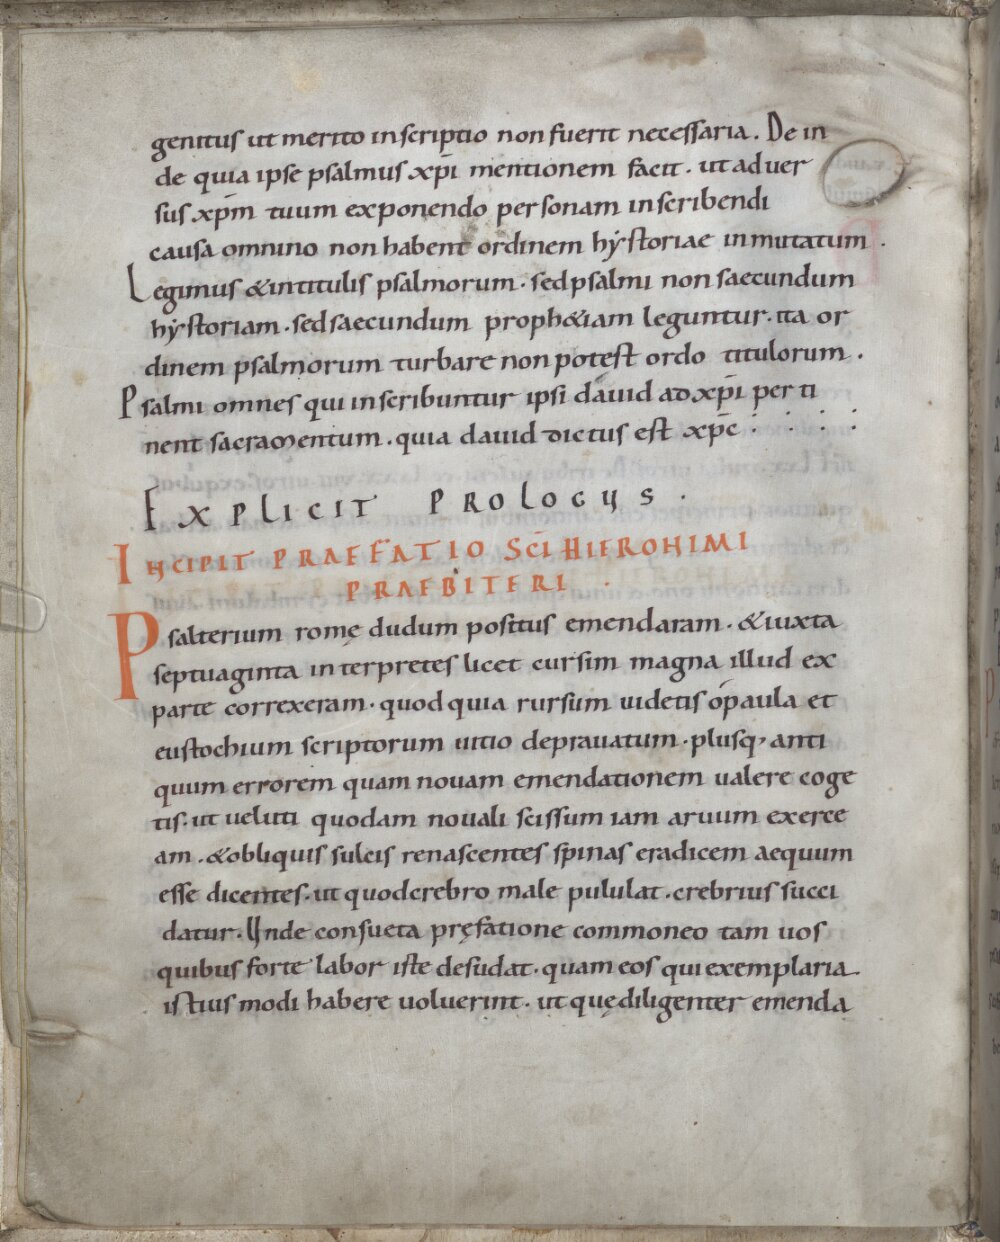 genitus ut merito inscriptio non fuerit necessaria. De in
de quia ipse psalmus xp̄i mentionem facit. ut aduer
sus xp̄m tuum exponendo personam inscribendi
causa omnino non habent ordinem hystoriae inmutatum.
Legimus &intitulis psalmorum. sed psalmi non saecundum
hystoriam. sed saecundum proph&iam leguntur. ita or
dinem psalmorum turbare non potest ordo titulorum.
Psalmi omnes qui inscribuntur ipsi dauid ad xp̄i perti
nent sacramentum. quia dauid dictus est xp̄c . . . .
EXPLICIT PROLOGUS.
INCIPIT PRAEFATIO SC̄I HIERONIMI
PRAEBITERI .
Psalterium romę dudum positus emendaram. &iuxta
septuaginta interpretes licet cursim magna illud ex
parte correxeram. quod quia rursum uidetis o paula et
eustochium scriptorum uitio deprauatum. plusq, anti
quum errorem quam nouam emendationem ualere coge
tis. ut uelitti quodam nouali scissum iam aruum exerce
am. &obliquis sulcis renascentes spinas eradicem aequum
esse dicentes. ut quod crebro male pululat. crebrius succi
datur. Unde consueta pręfatione commoneo tam uos
quibus forte labor iste desudat. quam eos qui exemplaria
istius modi habere uoluerint. ut quę diligenter emenda